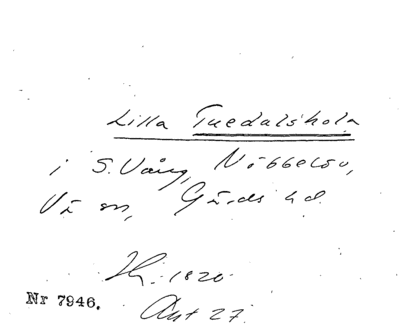 Lilla Tuedalshola
i S. Vång, Nöbbelöv,
Vä sn, Gärds hd.
1820
Nr 7946. Ant 27.